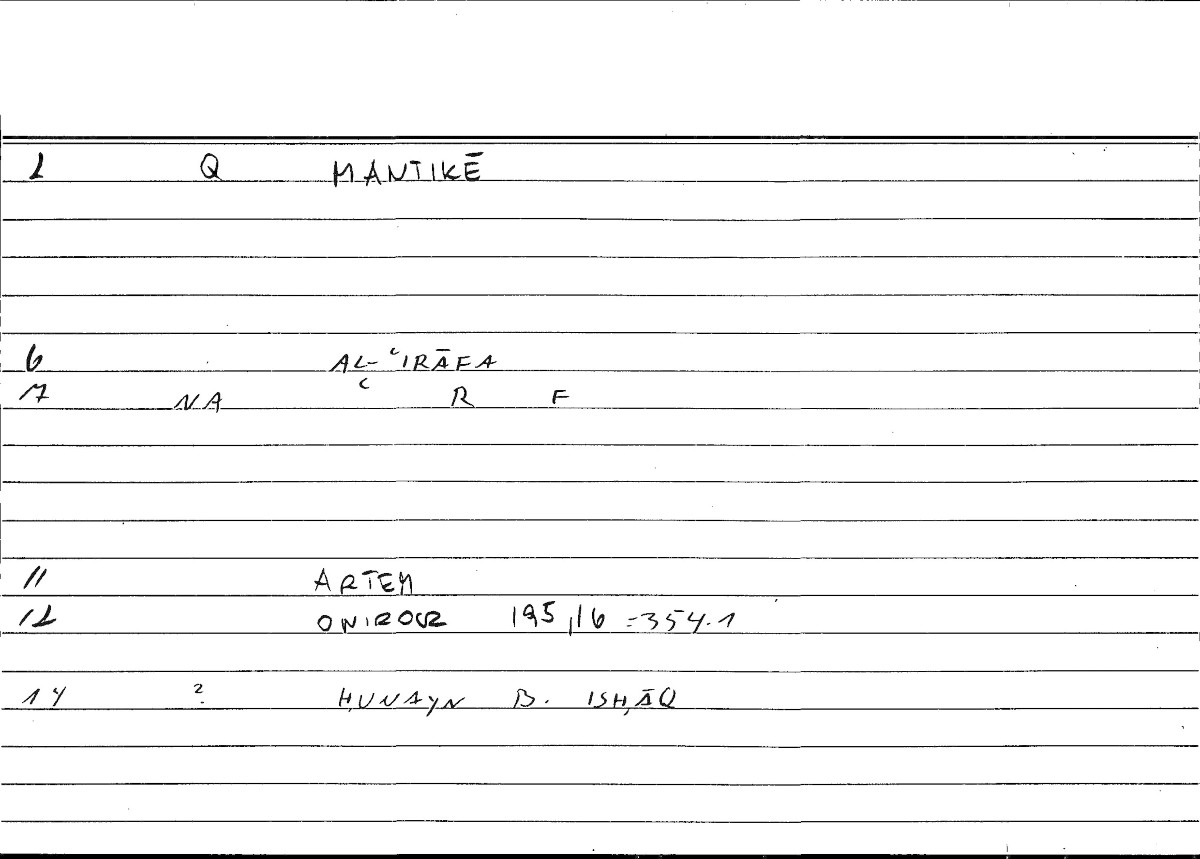 1 Q MANTIKĒ
6 AL-ʿIRĀFA
7 NA ʿ R F
11 ARTEM
12 ONIROCR 195,16 =354.1
14 ? ḤUNAYN B. ISḤĀQ